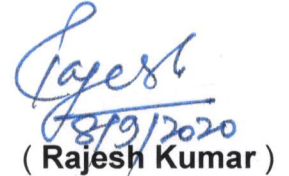 Rajesh
8/9/2020
( Rajesh Kumar )